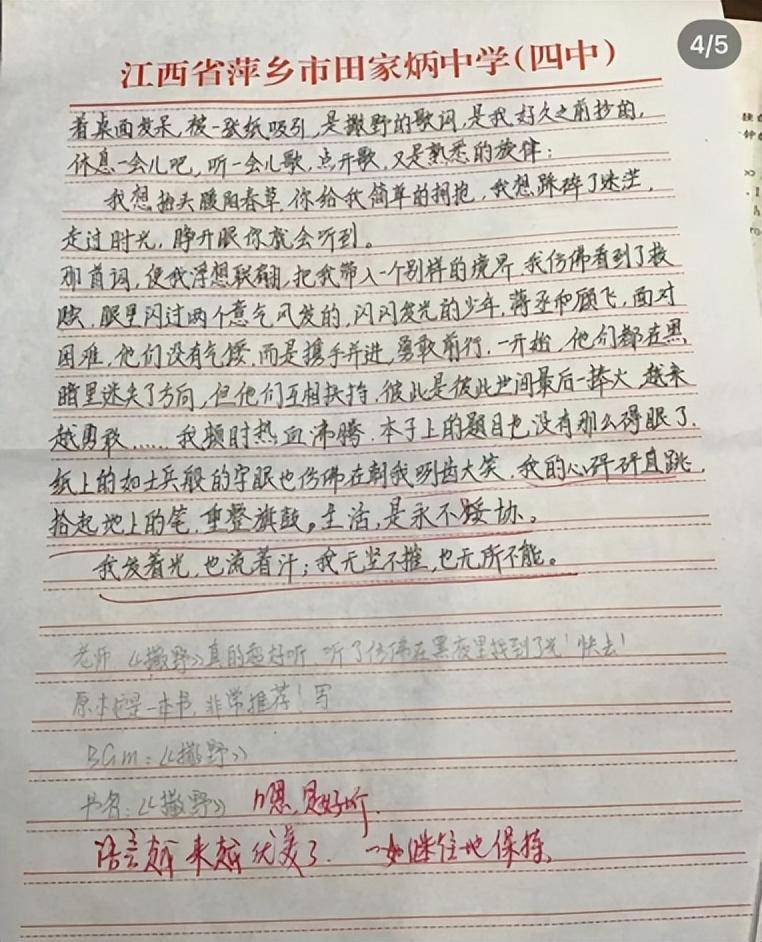 4/5
江西省萍乡市田家炳中学(四中)
着桌面发呆,被一张纸吸引,是撒野的歌词,是我好久之前抄的,
休息一会儿吧,听一会儿歌,点开歌,又是熟悉的旋律:
我想抬头暖阳春草,你给我简单的拥抱,我想踩碎了迷茫,
走过时光,睁开眼你就会听到。
那首词,使我浮想联翩,把我带入一个别样的境界,我仿佛看到了救
赎,眼里闪过两个意气风发的,闪闪发光的少年,蒋丞和顾飞,面对
困难,他们没有气馁,而是携手并进,勇敢前行,一开始,他们都在黑
暗里迷失了方向,但他们互相扶持,彼此是彼此世间最后一捧火,越来
越勇敢……我顿时热血沸腾,本子上的题目也没有那么碍眼了,
纸上的如士兵般的字眼也仿佛在朝我咧齿大笑,我的心砰砰直跳,
拾起地上的笔,重整旗鼓。生活,是永不妥协。
我发着光,也流着汗;我无坚不摧,也无所不能。
老师《撒野》真的超好听,听了仿佛在黑夜里找到了光!快去!
原本也是一本书,非常推荐!写
BGm:《撒野》
书名:《撒野》 嗯,是好听,
语言越来越优美了,一如继往地保持。